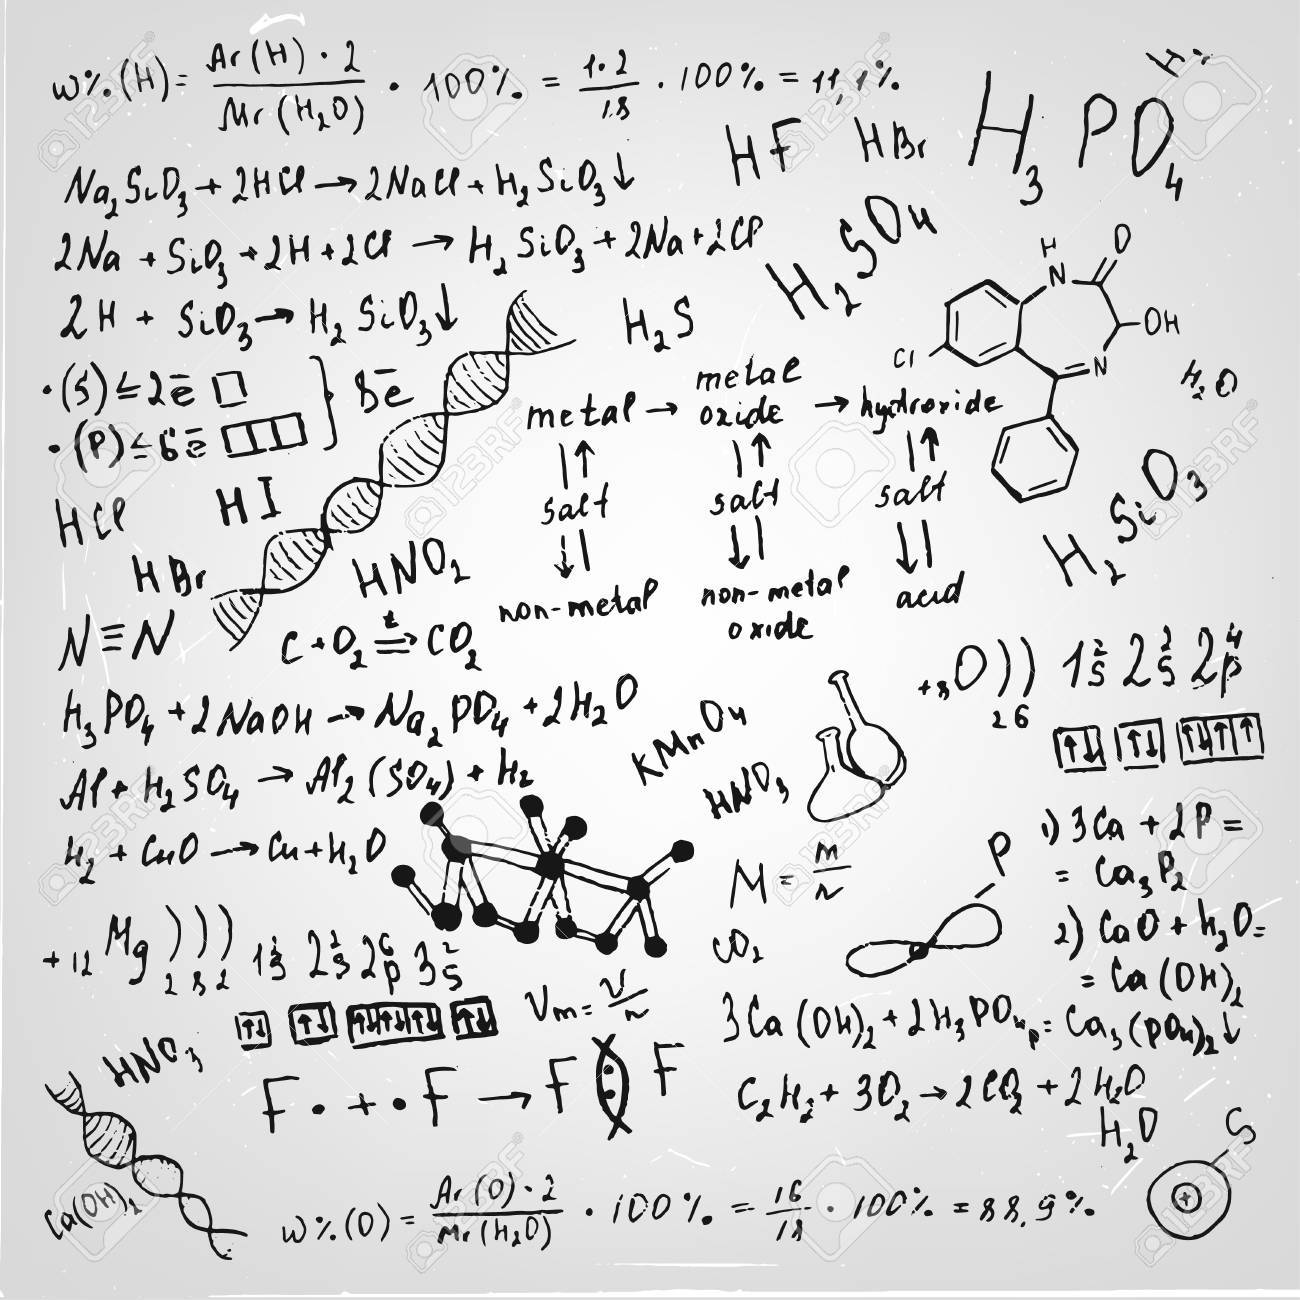 w%(H)= Ar(H)·2 / Mr(H₂O) · 100% = 1·2 / 18 · 100% = 11,1%
HF HBr H₃PO₄
Na₂SiO₃+2HCl→2NaCl+H₂SiO₃↓
2Na + SiO₃+2H+2Cl → H₂SiO₃+2Na+2Cl
H₂SO₄
2H + SiO₃→H₂SiO₃↓
H₂S
H N O OH N Cl
H₂O
·(S)≤2ē □
·(P)≤6ē □□□ } 8ē
metal → metal oxide → hydroxide
↓↑ ↓↑ ↓↑
salt salt salt
↓↑ ↓↑ ↓↑
non-metal non-metal oxide acid
HCl HI
HBr HNO₂
H₂SiO₃
N≡N C+O₂ t⇒ CO₂
+8 O)) 2 6 1s² 2s² 2p⁴
↑↓ ↑↓ ↑↓↑↑
H₃PO₄+2NaOH→Na₂PO₄+2H₂O
KMnO₄
Al+H₂SO₄→Al₂(SO₄)+H₂
HNO₃
H₂+CuO→Cu+H₂O
1) 3Ca + 2P =
= Ca₃P₂
M = m/n
P
2) CaO + H₂O=
= Ca(OH)₂
CO₂
+12 Mg ))) 2 8 2 1s² 2s² 2p⁶ 3s²
↑↓ ↑↓ ↑↓↑↓↑↓ ↑↓
Vm= V/n
3Ca(OH)₂+2H₃PO₄ = Ca₃(PO₄)₂↓
HNO₃
F· + ·F → F : F
C₂H₂+ 3O₂→2CO₂ + 2H₂O
H₂O
S
Ca(OH)₂
w%(O)= Ar(O)·2 / Mr(H₂O) · 100% = 16 / 18 · 100% = 88,9%
123RF